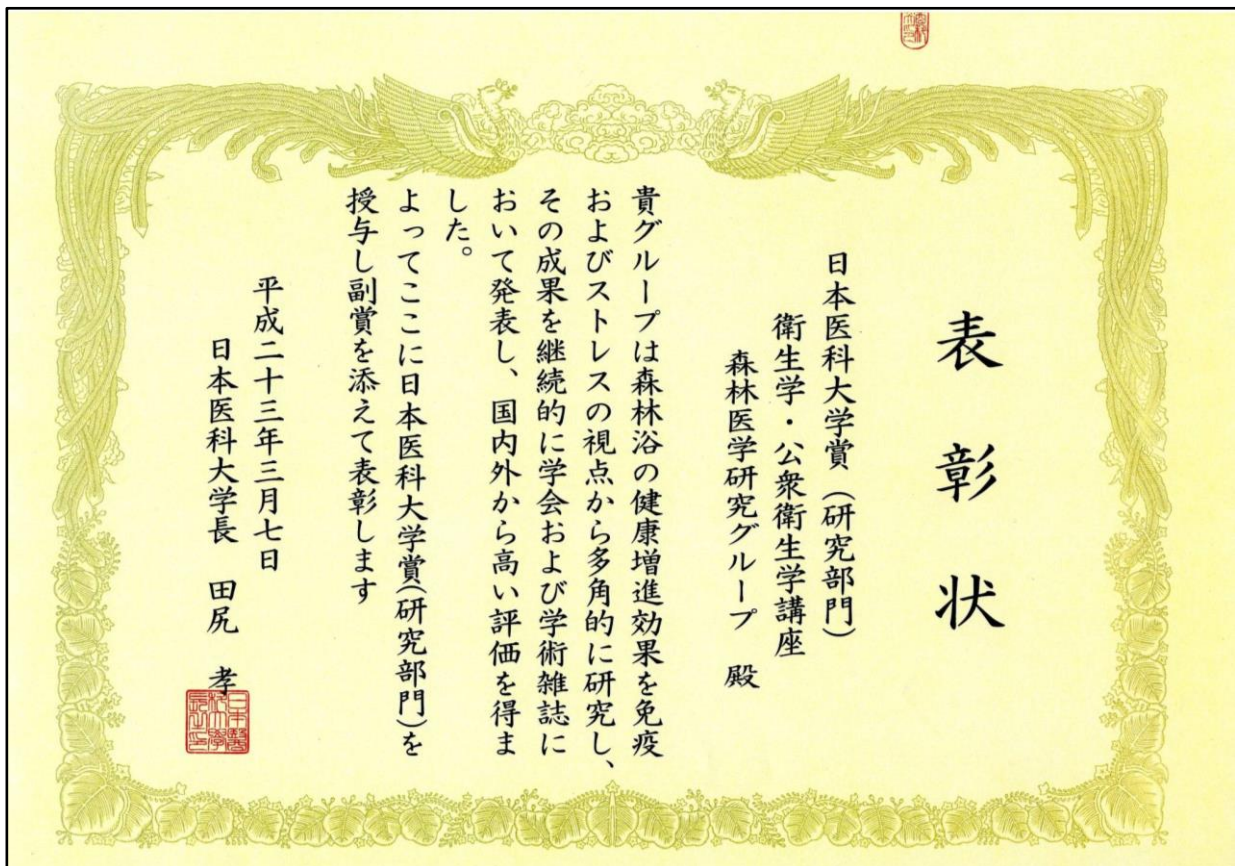 表彰状
日本医科大学賞（研究部門）
衛生学・公衆衛生学講座
森林医学研究グループ 殿
貴グループは森林浴の健康増進効果を免疫
およびストレスの視点から多角的に研究し、
その成果を継続的に学会および学術雑誌に
おいて発表し、国内外から高い評価を得ま
した。
よってここに日本医科大学賞（研究部門）を
授与し副賞を添えて表彰します
平成二十三年三月七日
日本医科大学長 田尻 孝